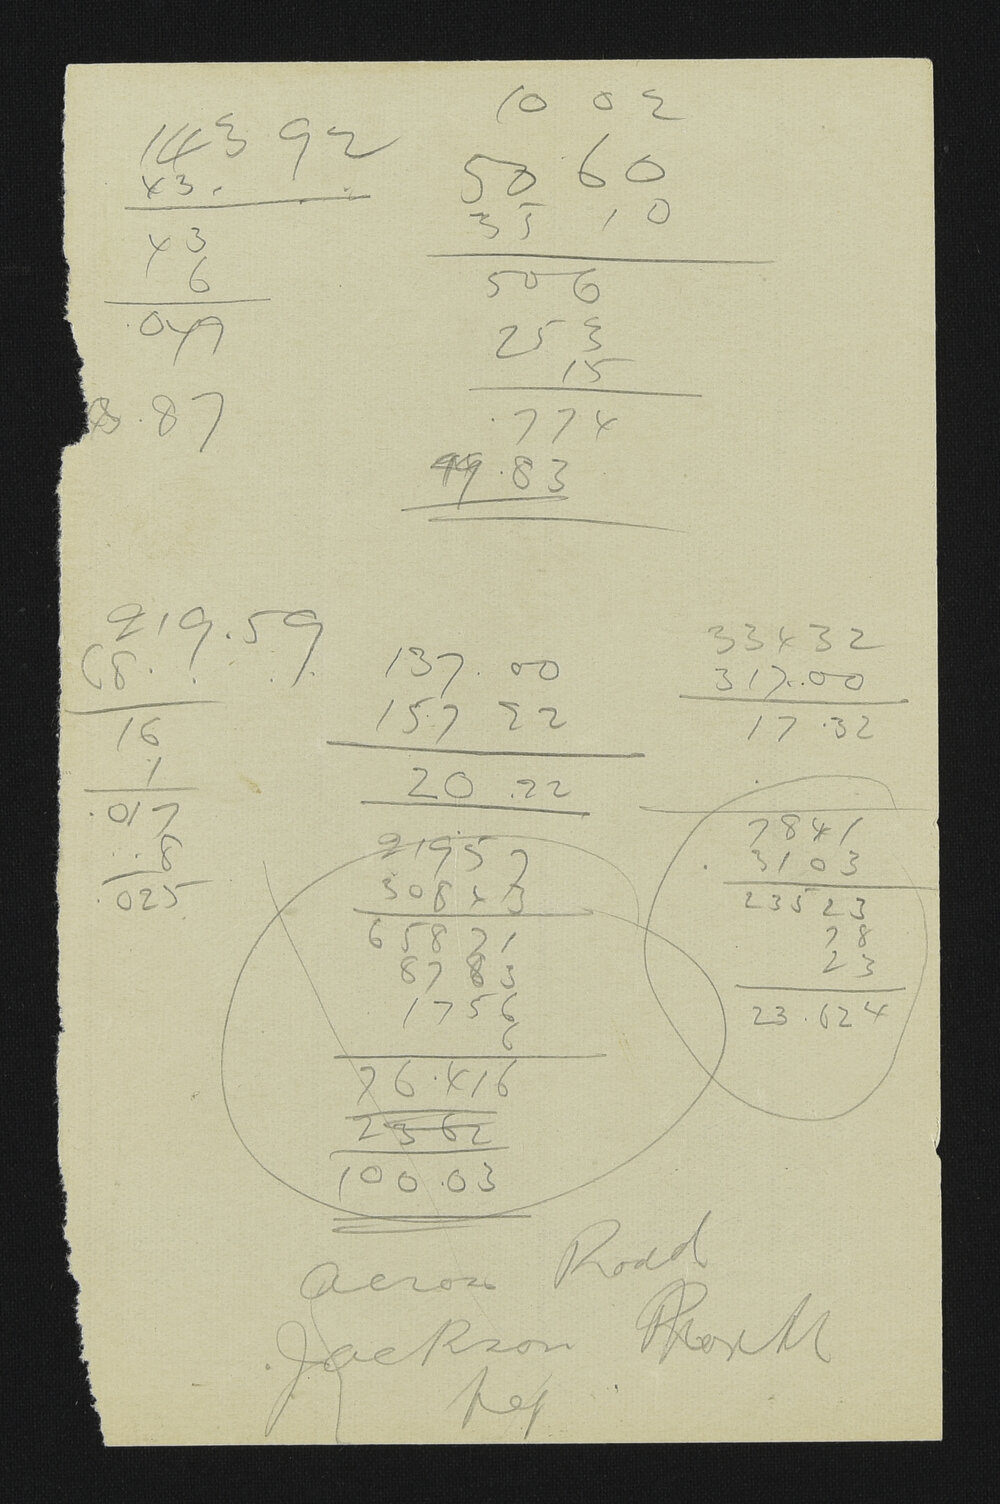 143 92
43.
43
6
.049
.87
10 02
50 60
35 10
506
253
15
.774
49.83
219.59
68.
16
1
.017
8
.025
137.00
157 22
20.22
21957
30843
65871
8783
1756
6
76.416
2362
100.03
33432
317.00
17.32
7841
3103
23523
78
23
23.624
across Road
Jackson